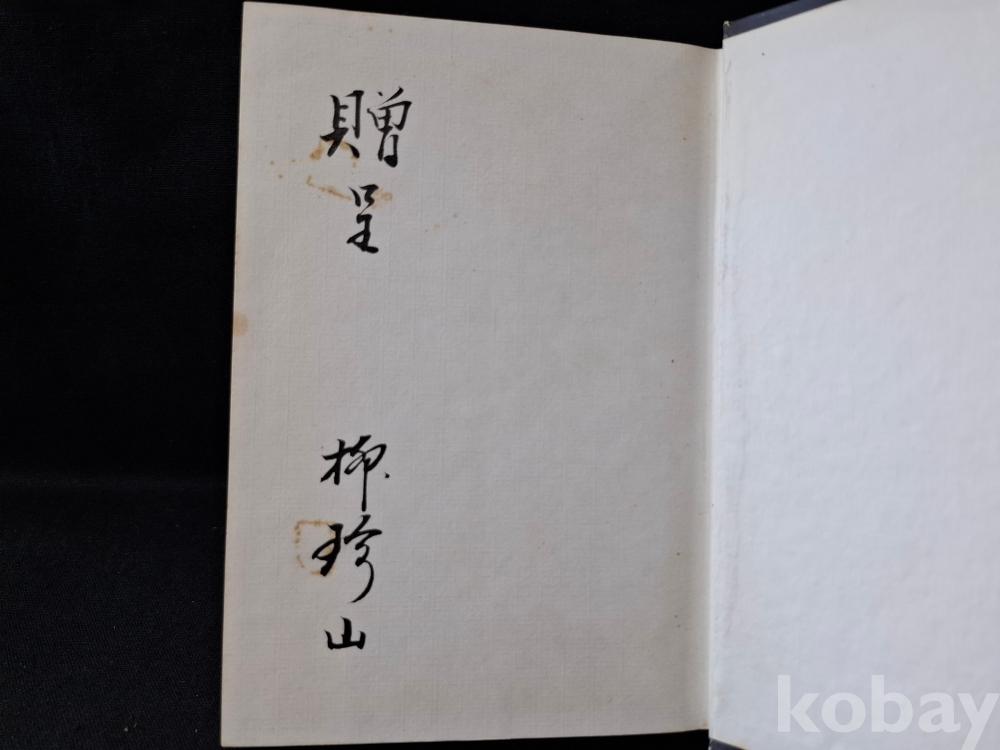 贈呈
柳珍山
kobay